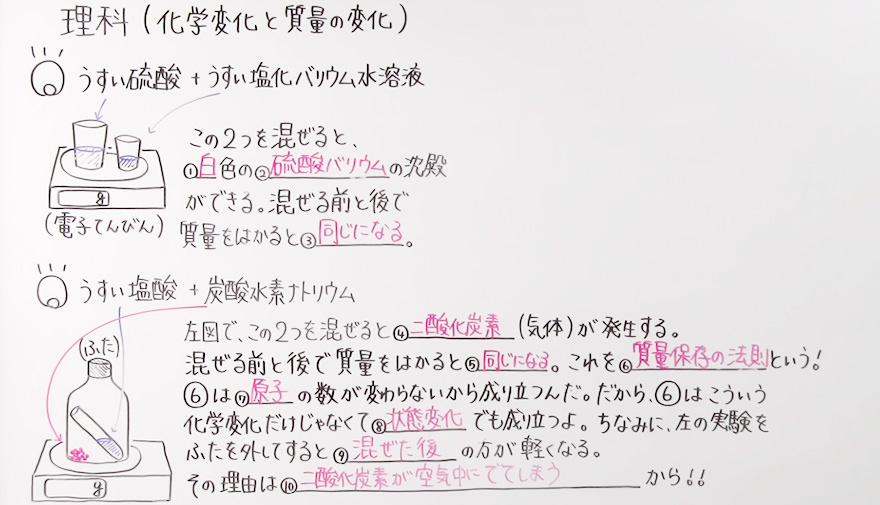 理科(化学変化と質量の変化)
うすい硫酸+うすい塩化バリウム水溶液
この2つを混ぜると、
①白色の②硫酸バリウムの沈殿
ができる。混ぜる前と後で
質量をはかると③同じになる。
g
(電子てんびん)
うすい塩酸+炭酸水素ナトリウム
(ふた)
左図で、この2つを混ぜると④二酸化炭素(気体)が発生する。
混ぜる前と後で質量をはかると⑤同じになる。これを⑥質量保存の法則という!
⑥は⑦原子の数が変わらないから成り立つんだ。だから、⑥はこういう
化学変化だけじゃなくて⑧状態変化でも成り立つよ。ちなみに、左の実験を
ふたを外してすると⑨混ぜた後の方が軽くなる。
その理由は⑩二酸化炭素が空気中にでてしまうから!!
g